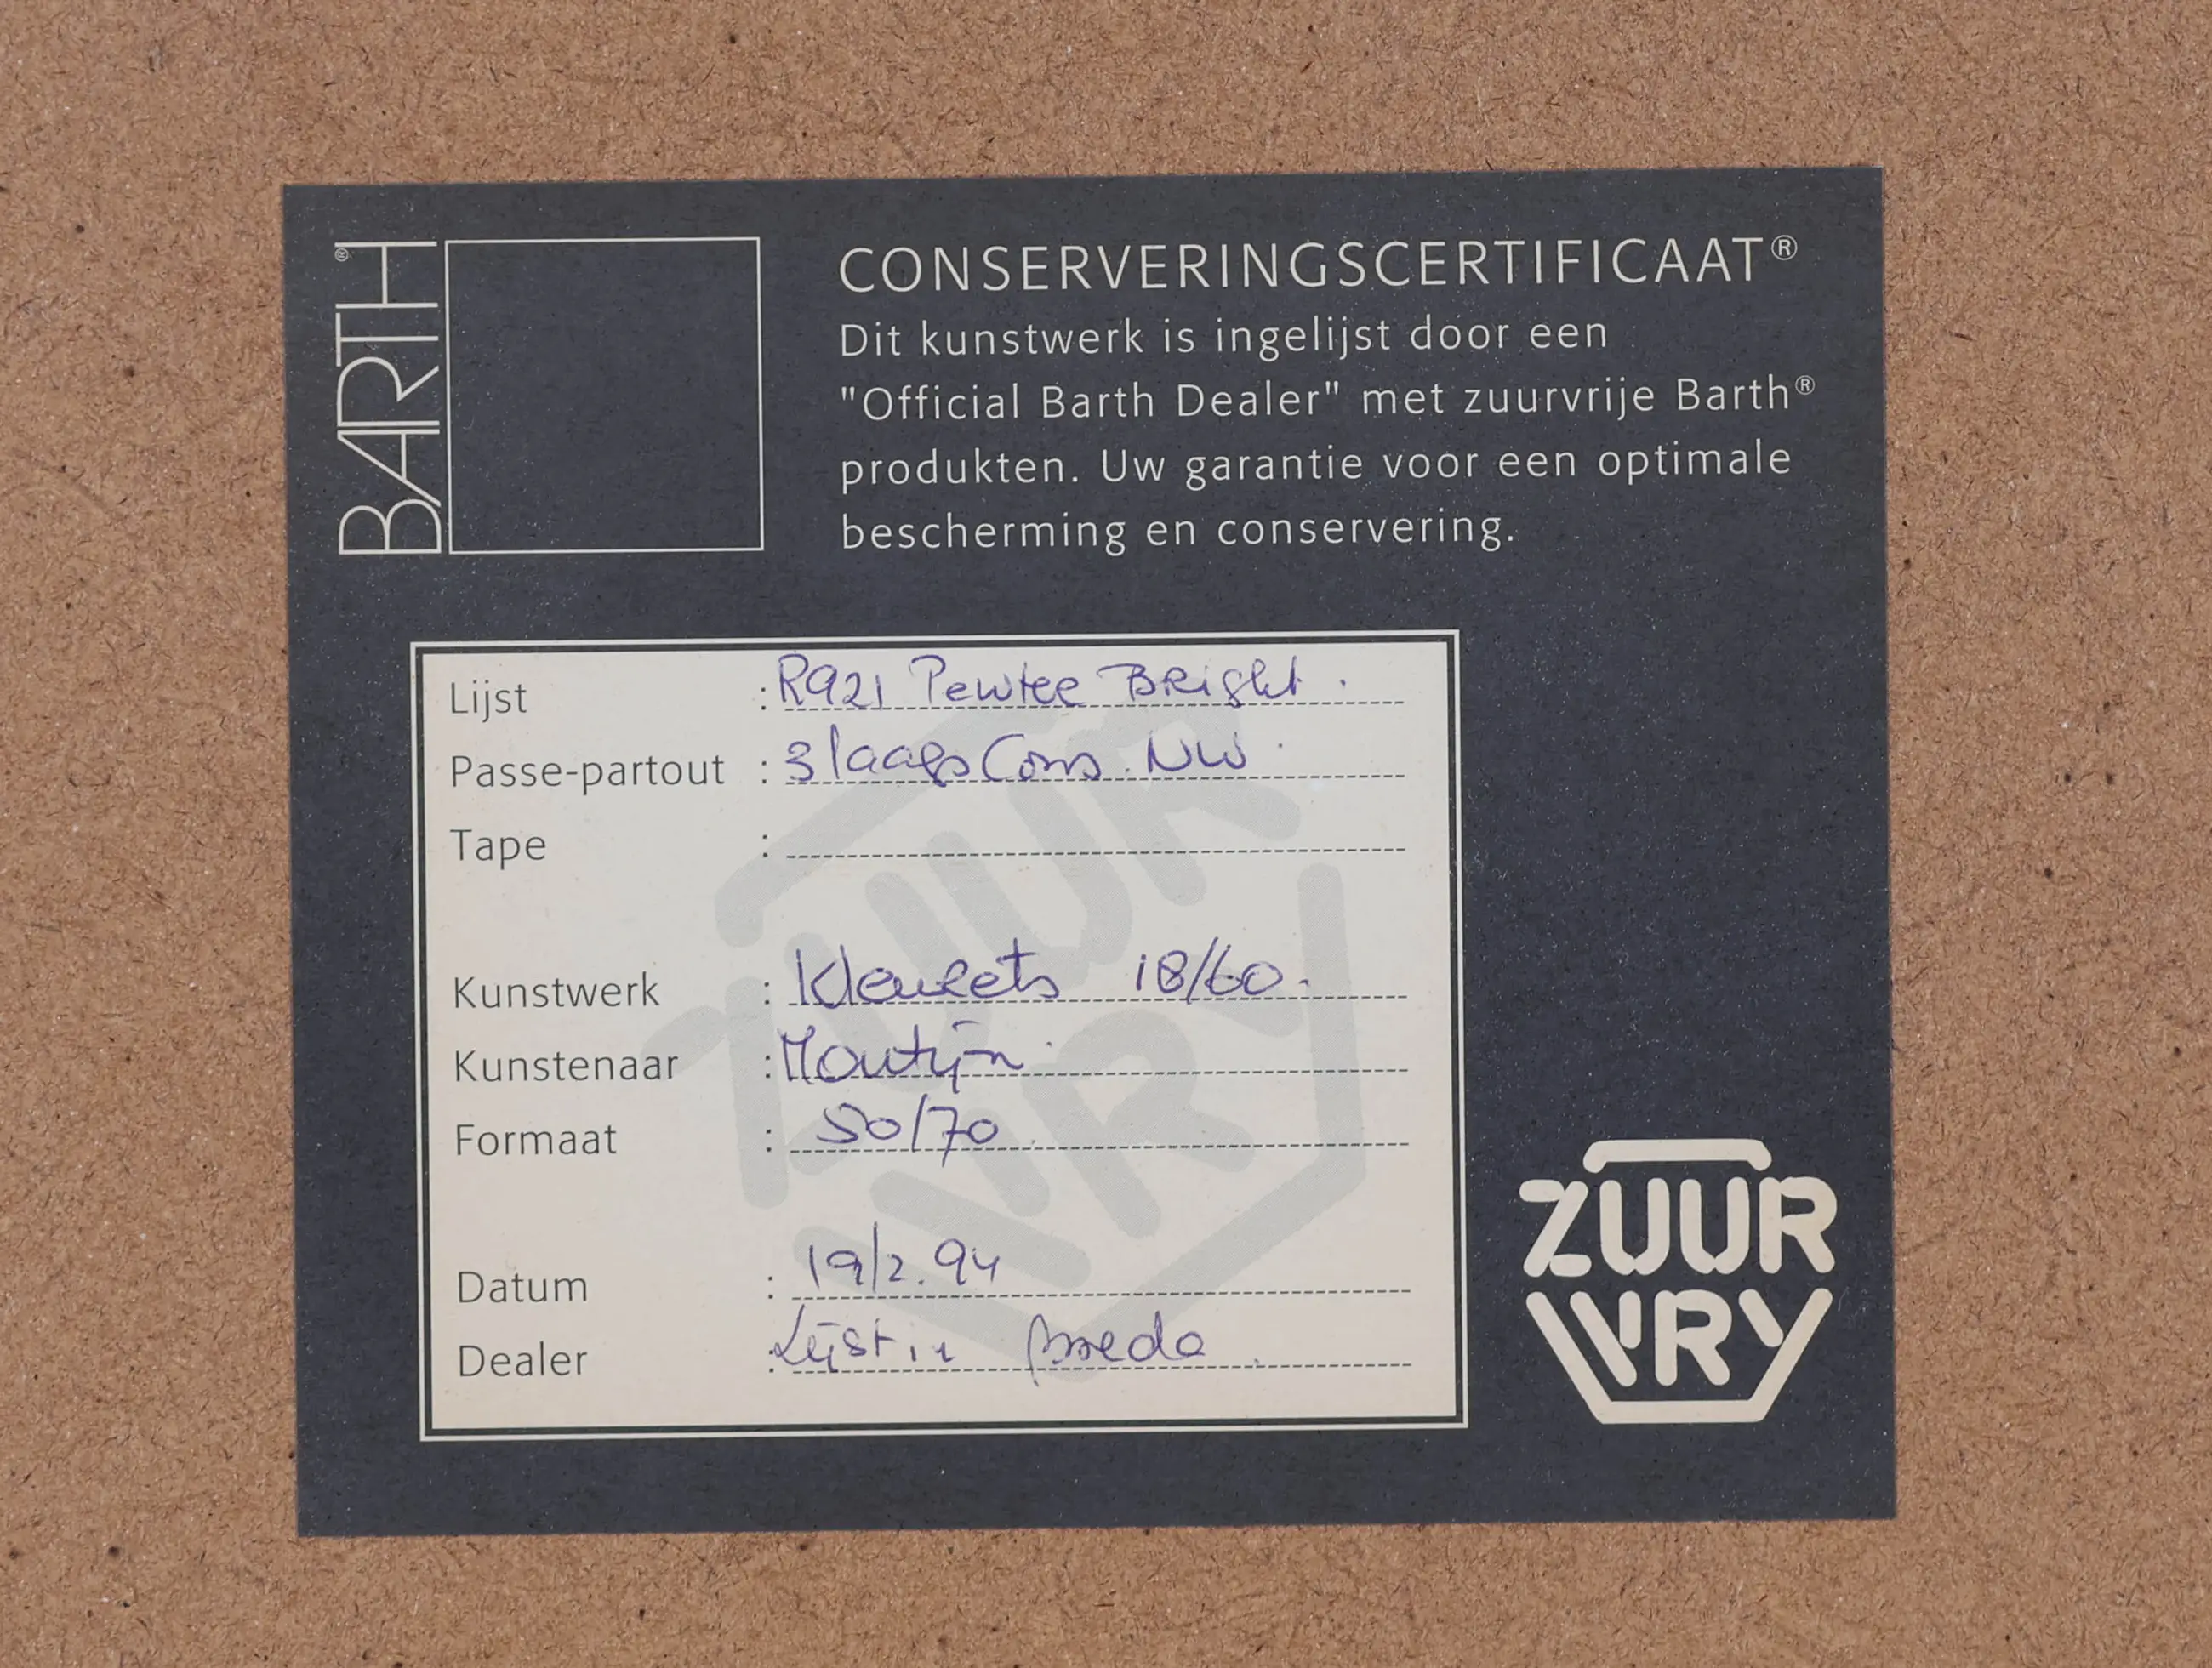 BARTH®
CONSERVERINGSCERTIFICAAT®
Dit kunstwerk is ingelijst door een
"Official Barth Dealer" met zuurvrije Barth®
produkten. Uw garantie voor een optimale
bescherming en conservering.
Lijst : R921 Pewter Bright.
Passe-partout : 3 laags Cons. NW.
Tape :
Kunstwerk : Kleurets 18/60.
Kunstenaar :
Formaat : 50/70
Datum : 19/2.94
Dealer : Lijst in Breda
ZUUR
VRY
ZUUR
VRY